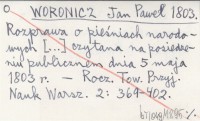 o WORONICZ Jan Paweł 1803.
Rozprawa o pieśniach narodo-
wych [...] czytana na posiedze-
niu publicznem dnia 5 maja
1803 r. — Rocz. Tow. Przyj.
Nauk Warsz. 2: 364-402.